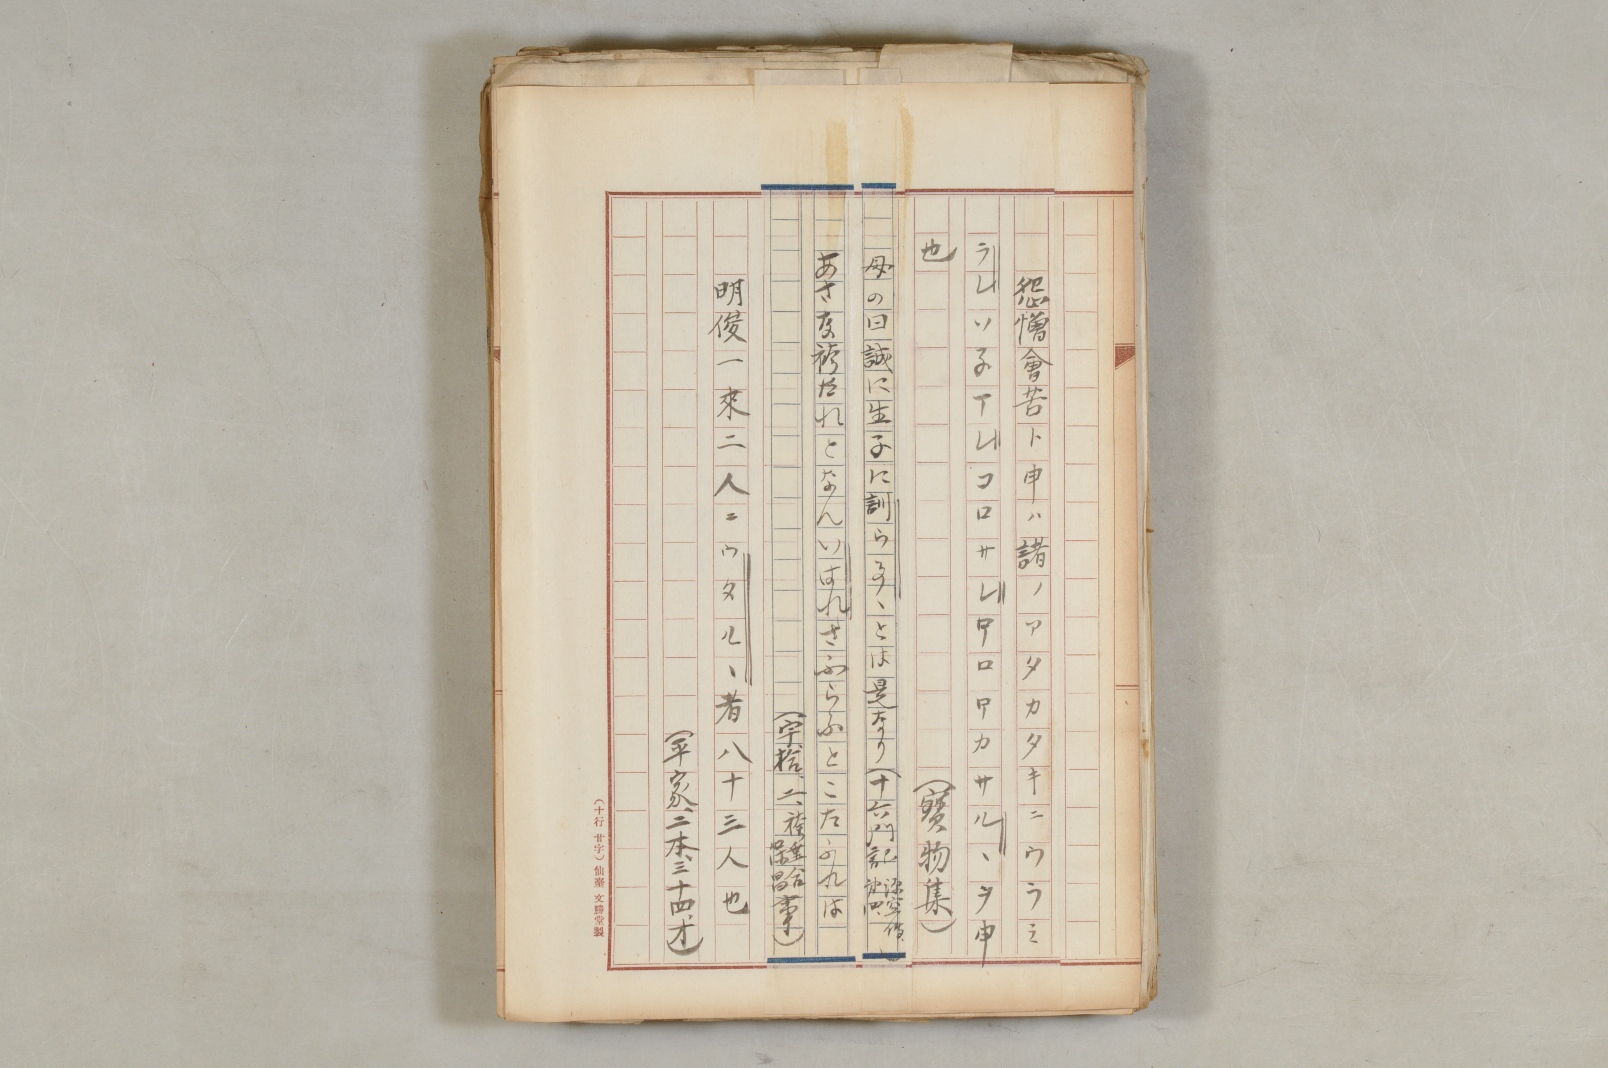 怨憎會苦ト申ハ諸ノアタカタキニウラミ
ラレソ子マレコロサレ
ロ
カサルヽヲ申
也
(寳物集)
母の曰誠に生子に訓らるヽとは是なり(十六門記
あさ度袴たれとなんいはれさふらふとこたふれは
(宇拾、二、袴
保昌
事)
明俊一來二人ニウタルヽ者八十三人也
(平家、二本、三十四オ)
(十行 廿字) 仙臺 文勝堂製